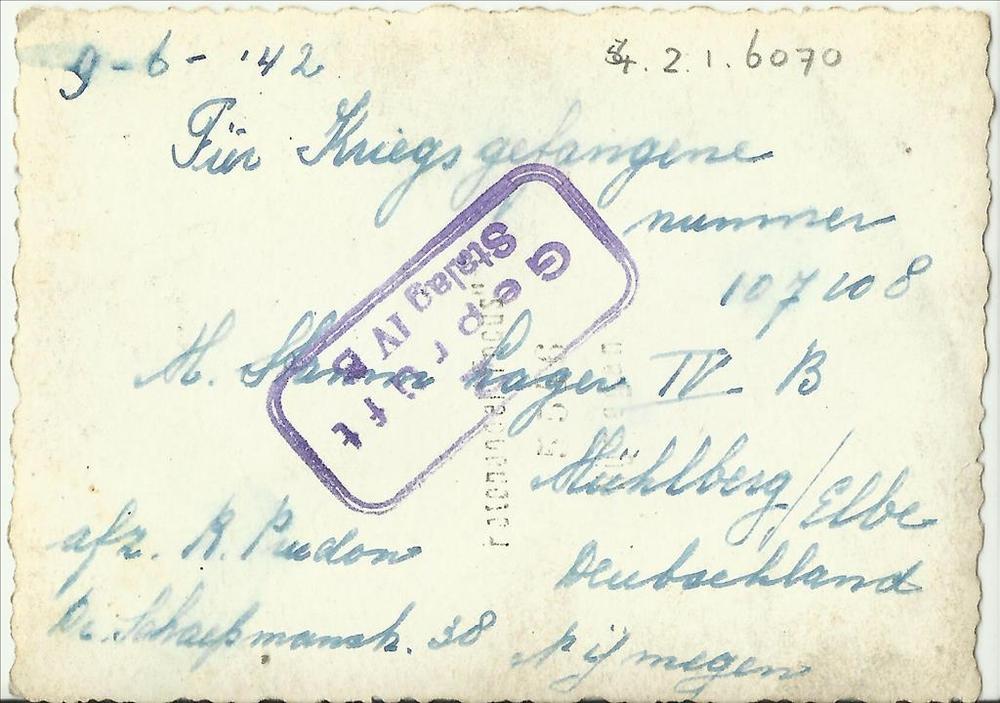 9-6-'42
4.2.1.6070
Für Kriegsgefangene
nummer
107108
M. Stamm Lager IV B
Mühlberg/Elbe
Deutschland
afz. R. Prudon
Dr. Schaepmanstr. 38 Nijmegen
Geprüft
Stalag IV B